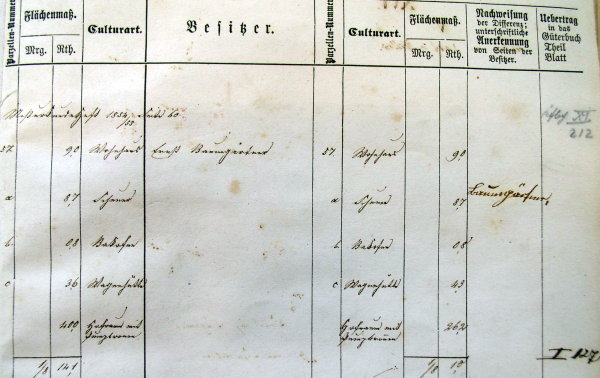 Parzellen-Nummer Flächenmaß. Culturart. Besitzer. Parzellen-Nummer Culturart. Flächenmaß. Nachweisung der Differenz; unterschriftliche Anerkennung von Seiten der Besitzer. Uebertrag in das Güterbuch Theil Blatt
Mrg. Rth. Mrg. Rth.
1854/55 60
XI 212
57. 9,0 Wohnhaus Ernst Baumgärtner 57. Wohnhaus 9,0
a 8,7 Scheuer a Scheuer 8,7 Baumgärtner.
b. 0,8 Backofen b Backofen 0,8
c 3,6 Wagenhütte c Wagenhütte 4,3
40,0 Hofraum mit Pumpbrunnen Hofraum mit Pumpbrunnen 26,2
1/8 14,1 1/8 1,0 I 127